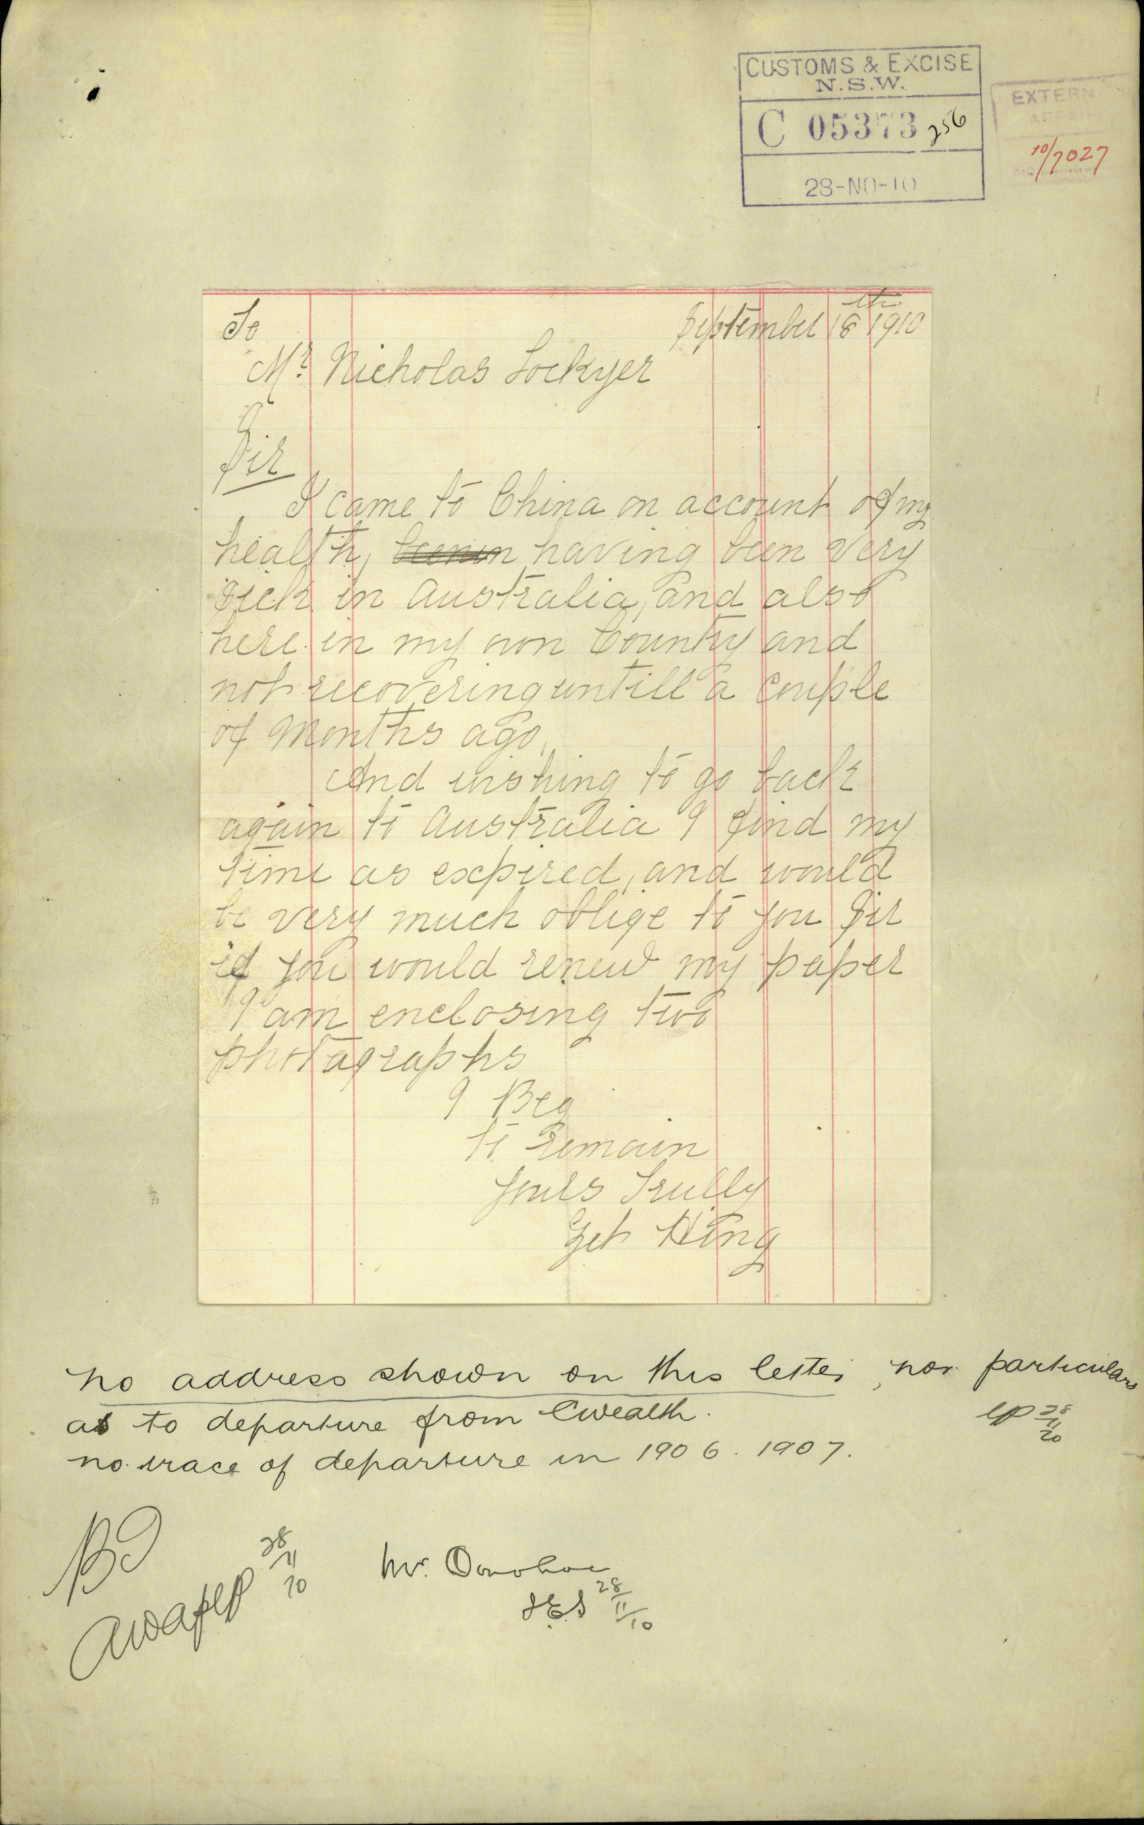 CUSTOMS & EXCISE
N.S.W.
C 05373 256
28-NO-10
EXTERNAL
AFFAIRS
10/7027
To
September 18th 1910
Mr Nicholas Lockyer
Sir
I came to China on account of my
health, having been very
sick in Australia, and also
here in my own Country and
not recovering untill a couple
of Months ago,
And wishing to go back
again to Australia I find my
time as expired, and would
be very much oblige to you Sir
if you would renew my paper
I am enclosing two
photographs
I Beg
to Remain
Yours Trully
Get Hing
no address shown on this letter, nor particulars
as to departure from Cwealth.
no trace of departure in 1906. 1907.
28/11/10
28/11/10
Mr. Donohoe
28/11/10